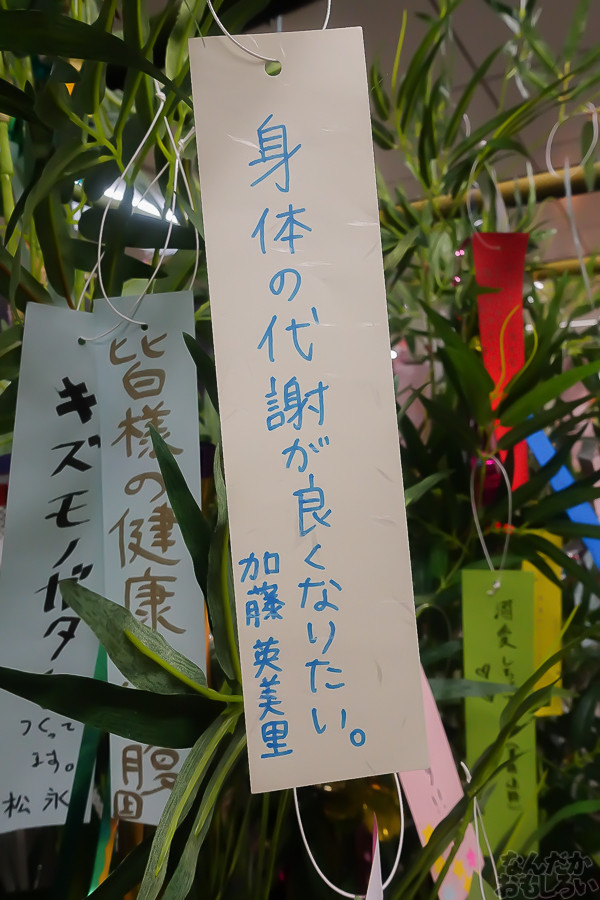 身体の代謝が良くなりたい。
加藤 英美里
皆様の健康
キズモノガタ
つくって
ます。
松永
なんだか
おもしろい